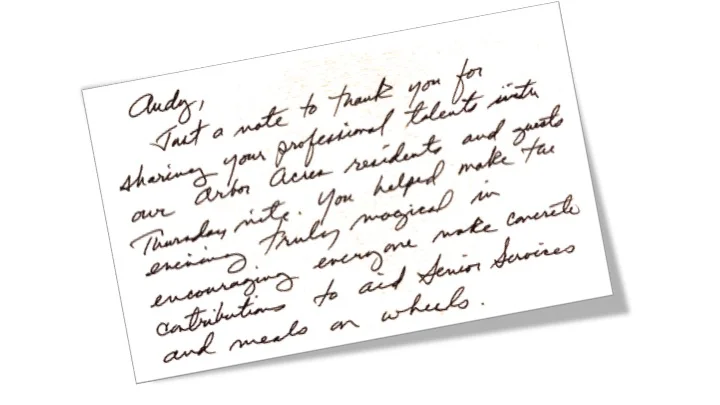 Andy,
Just a note to thank you for
sharing your professional talents with
our Arbor Acres residents and guests
Thursday nite. You helped make the
evening truly magical in
encouraging everyone make concrete
contributions to aid Senior Services
and meals on wheels.